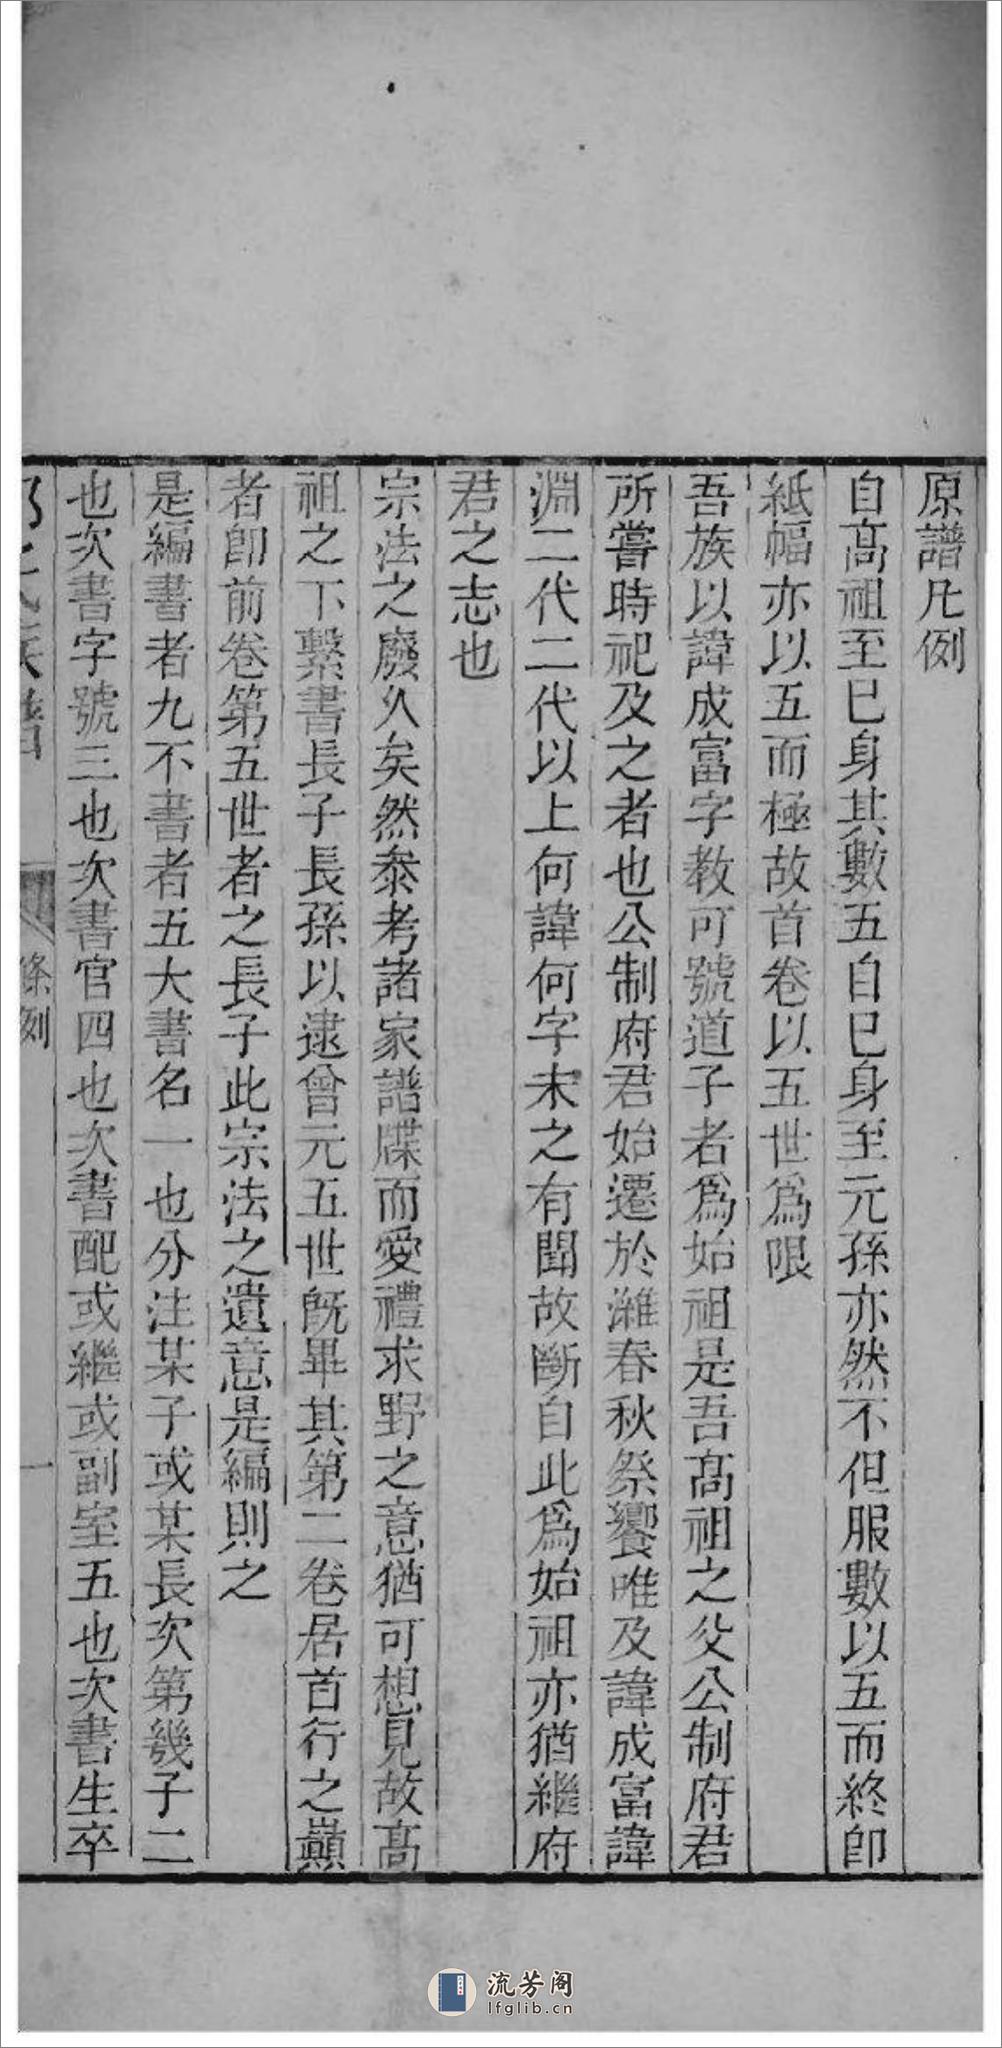 原譜凡例
自高祖至巳身其數五自巳身至元孫亦然不但服數以五而終卽
紙幅亦以五而極故首卷以五世爲限
吾族以諱成富字教可號道子者爲始祖是吾高祖之父公制府君
所嘗時祀及之者也公制府君始遷於濰春秋祭饗唯及諱成富諱
淵二代二代以上何諱何字未之有聞故斷自此爲始祖亦猶繼府
君之志也
宗法之廢久矣然泰考諸家譜牒而愛禮求野之意猶可想見故高
祖之下繫書長子長孫以逮曾元五世旣畢其第二卷居首行之巔
者卽前卷第五世者之長子此宗法之遺意是編則之
是編書者九不書者五大書名一也分注某子或某長次第幾子二
也次書字號三也次書官四也次書配或繼或副室五也次書生卒
氏族譜
條例
一
流芳阁
lfglib.cn